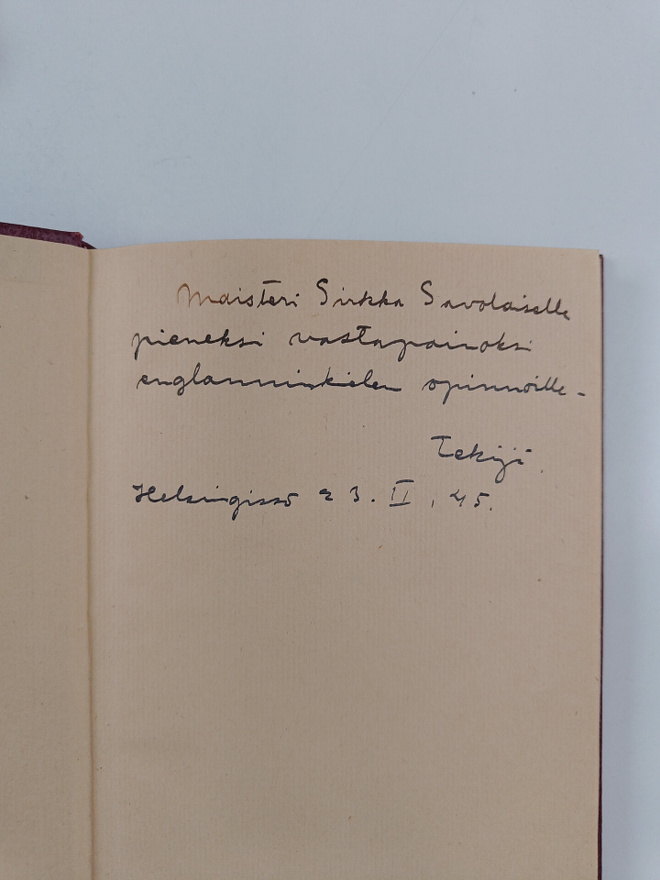 Maisteri Sirkka Savolaiselle
pieneksi vastapainoksi
englanninkielen opinnoille-
Tekijä.
Helsingissä 23. II. 45.